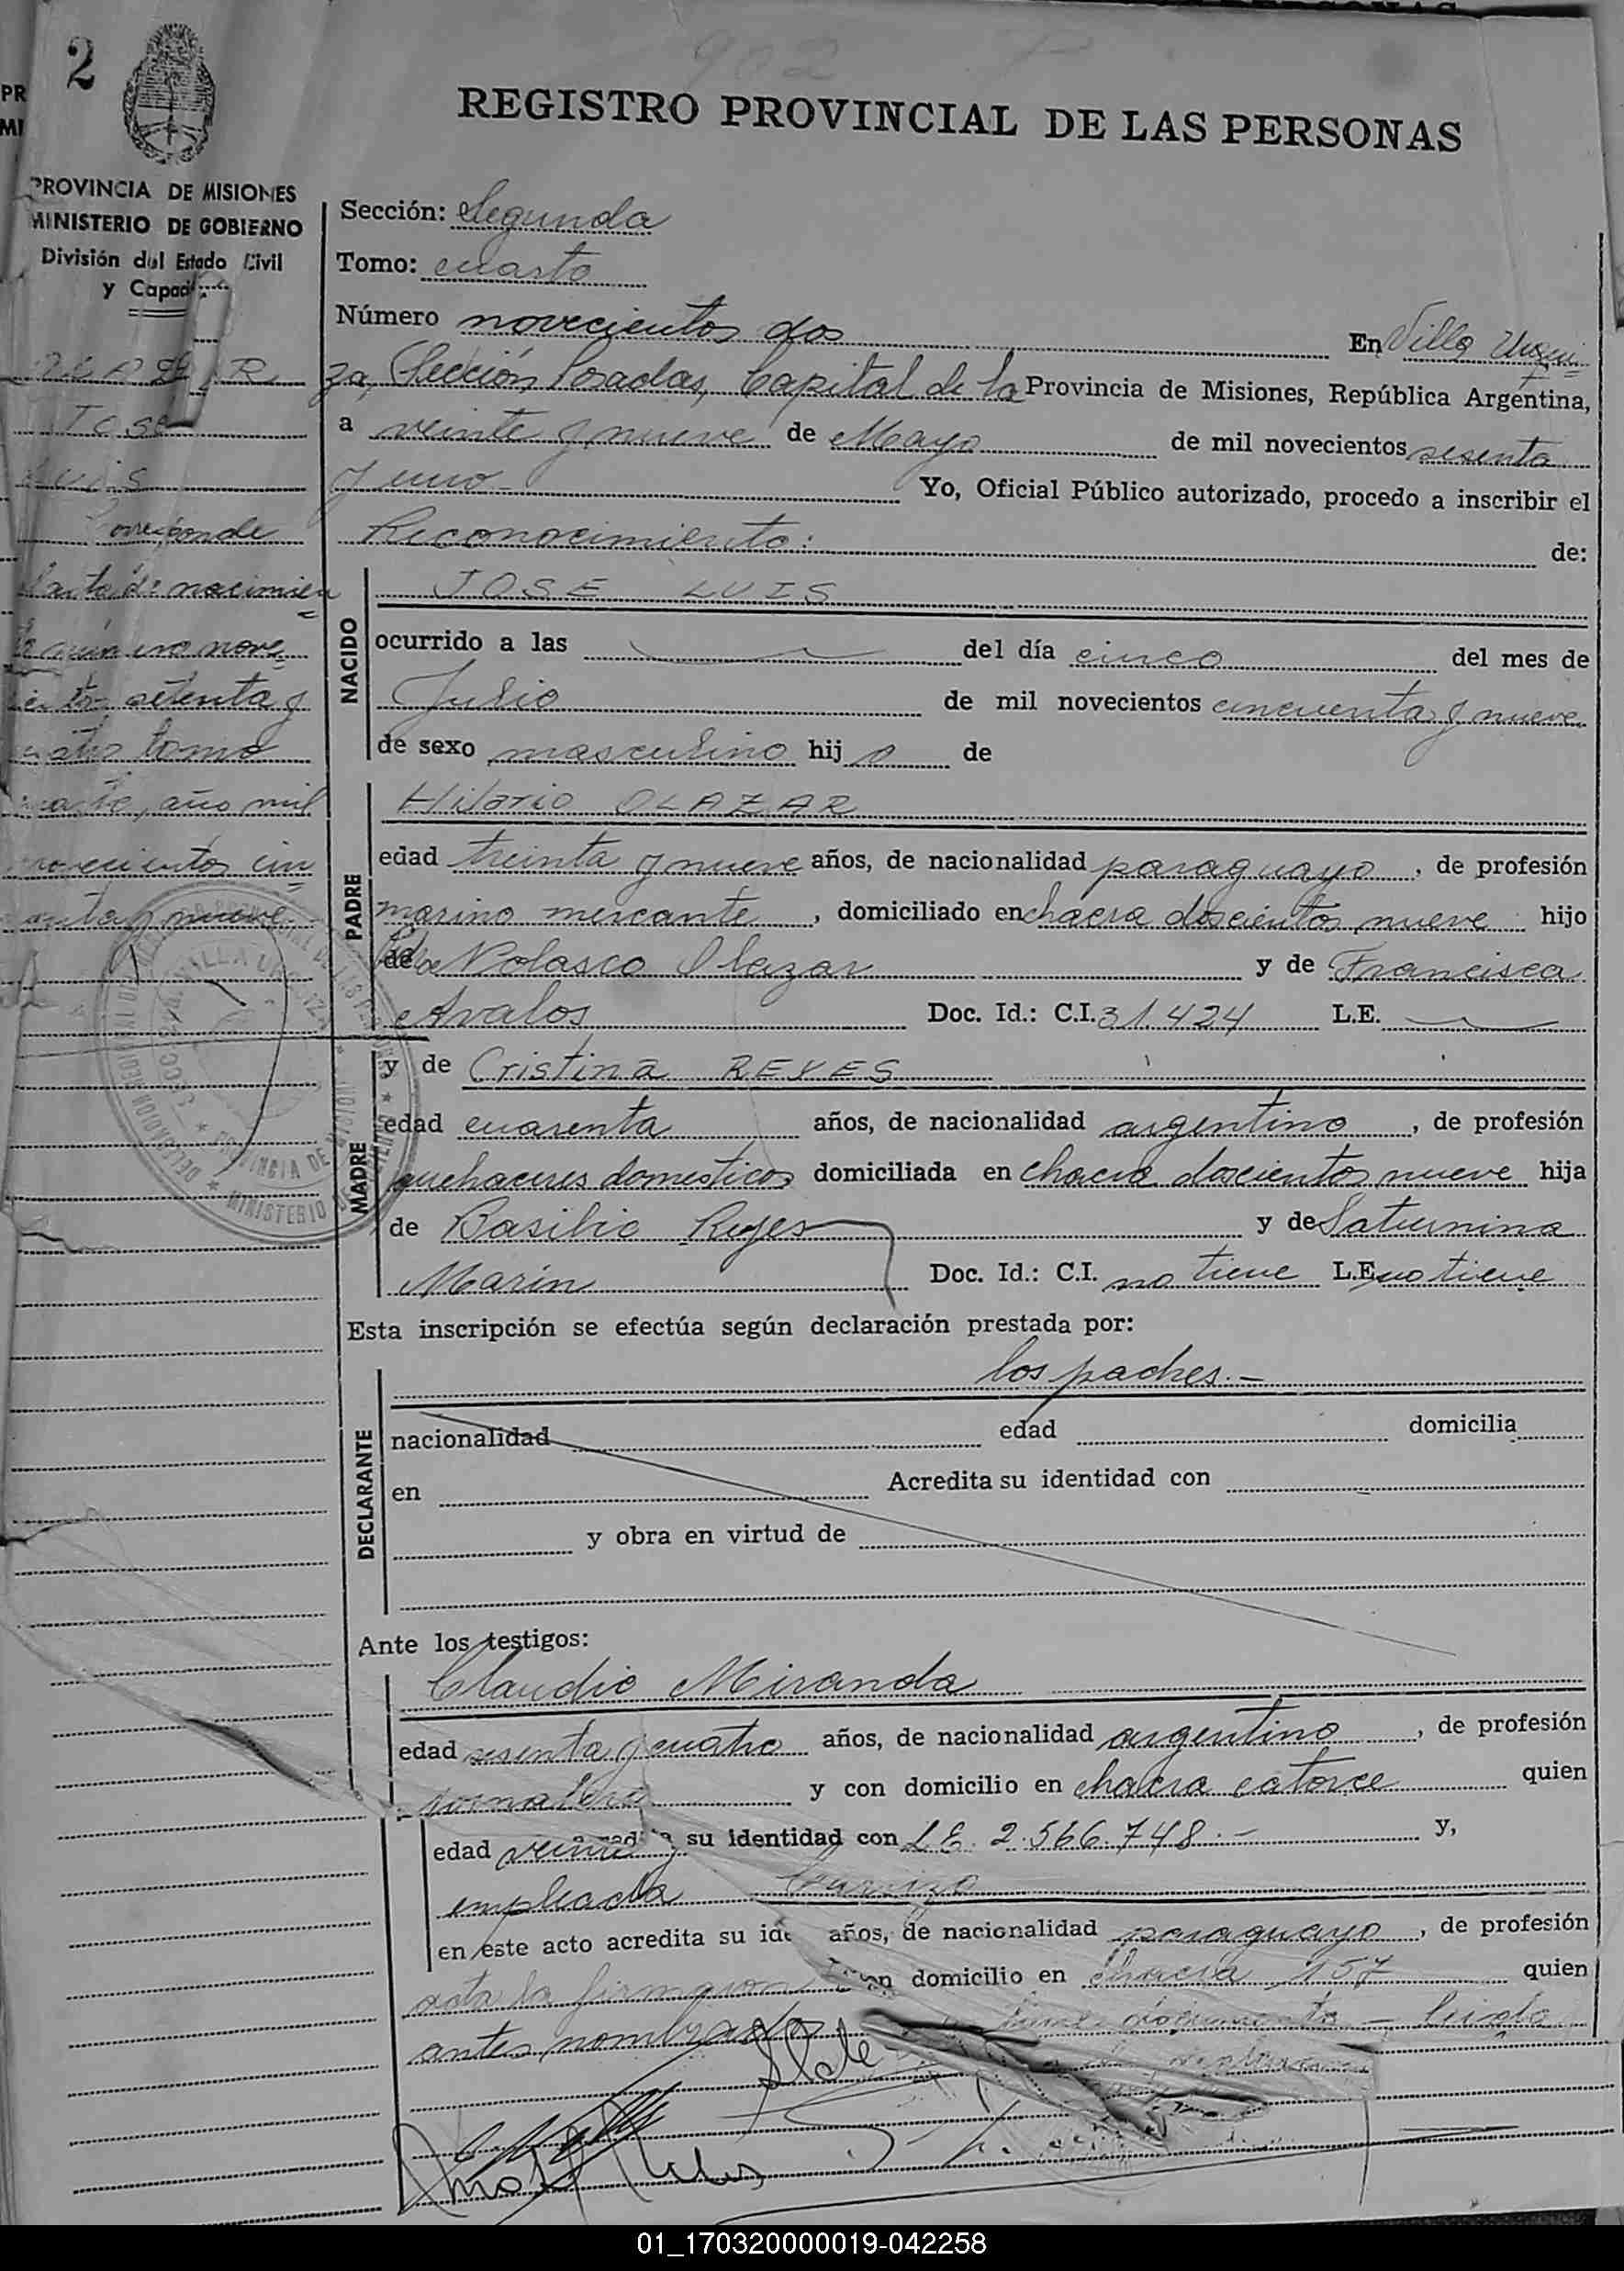 902
2
REGISTRO PROVINCIAL DE LAS PERSONAS
PROVINCIA DE MISIONES
MINISTERIO DE GOBIERNO
División del Estado Civil
y Capaci
OLAZAR
José
Luis
Corresponde
al acta de nacimien
to número nove
cientos setenta y
cuatro tomo
cuarto, año mil
novecientos cin
cuenta y nueve.
Sección: Segunda
Tomo: cuarto
Número novecientos dos En Villa Urqui
za, Sección Posadas, Capital de la Provincia de Misiones, República Argentina,
a veinte y nueve de Mayo de mil novecientos sesenta
y uno Yo, Oficial Público autorizado, procedo a inscribir el
Reconocimiento: de:
NACIDO
JOSE LUIS
ocurrido a las del día cinco del mes de
Julio de mil novecientos cincuenta y nueve
de sexo masculino hij o de
PADRE
Hilario OLAZAR
edad treinta y nueve años, de nacionalidad paraguayo, de profesión
marino mercante, domiciliado en chacra doscientos nueve hijo
de Nolasco Olazar y de Francisca
Avalos Doc. Id.: C.I. 31.424 L.E.
MADRE
y de Cristina REYES
edad cuarenta años, de nacionalidad argentino, de profesión
quehaceres domesticos domiciliada en chacra doscientos nueve hija
de Basilio Reyes y de Saturnina
Marin Doc. Id.: C.I. no tiene L.E. no tiene
Esta inscripción se efectúa según declaración prestada por:
DECLARANTE
los padres.-
nacionalidad edad domicilia
en Acredita su identidad con
y obra en virtud de
Ante los testigos:
Claudio Miranda
edad sesenta y cuatro años, de nacionalidad argentino, de profesión
jornalero y con domicilio en chacra catorce quien
su identidad con L.E. 2.566.748.- y,
edad
empleada
años, de nacionalidad paraguayo, de profesión
en este acto acredita su ide
domicilio en chacra 157 quien
acta la firmaron documento - Leida
antes nombrados
01_170320000019-042258